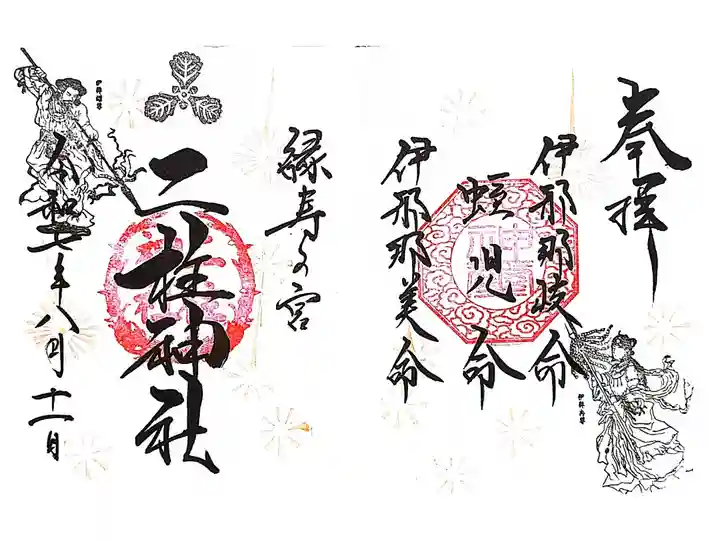 奉拝
伊邪那岐命
蛭児命
伊邪那美命
縁寿の宮
二柱神社
令和七年八月十一日